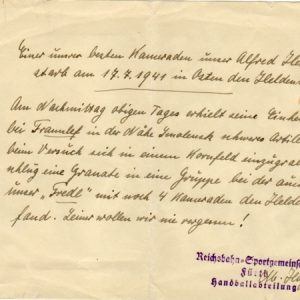 Einer unsrer besten Kameraden unser Alfred
starb am 17.7.1941 in Osten den Helden
Am Nachmittag obigen Tages erhielt seine Einhe
bei in der Nähe Smolensk schweres Artille
beim Versuch sich in einem Kornfeld einzugra
schlug eine Granate in eine Gruppe bei der au
unser „Fredl“ mit noch 4 Kameraden den Helde
fand. Seiner wollen wir nie vergessen!
Reichsbahn-Sportgemeinsc
Fürth
Handballabteilung